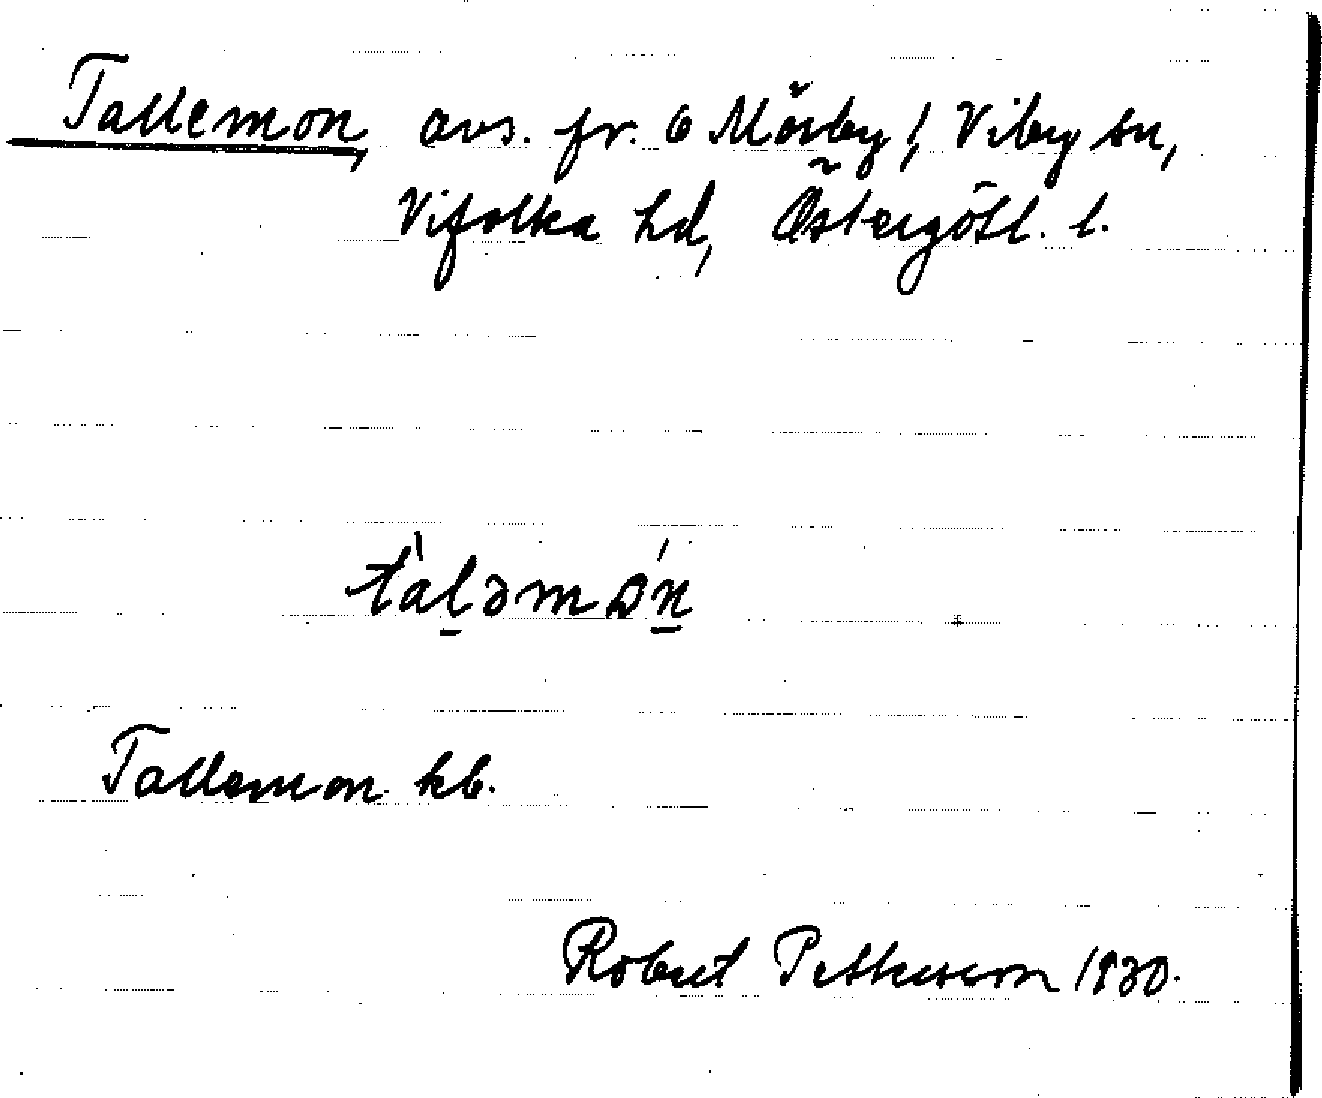 Tallemon, avs. fr. 6 Mörby /, Viby sn,
Vifolka hd, Östergötl. l.
tàləmɷ́n
Tallemon kb.
Robert Pettersson 1930.